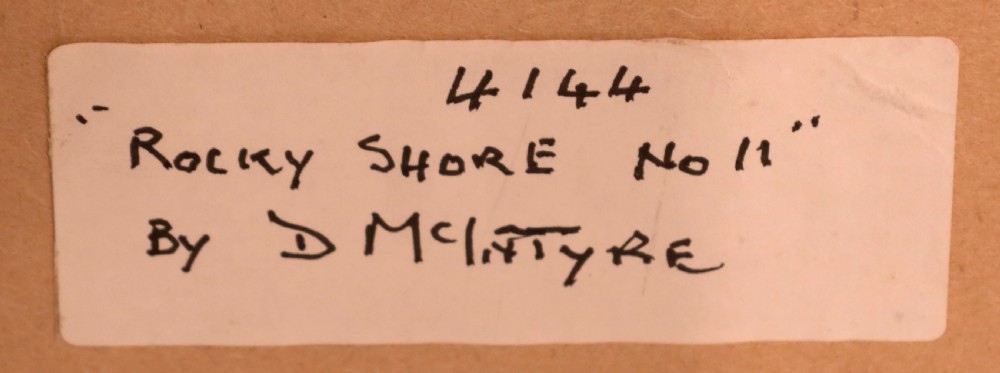 4144
"ROCKY SHORE No 11"
By D McINTYRE